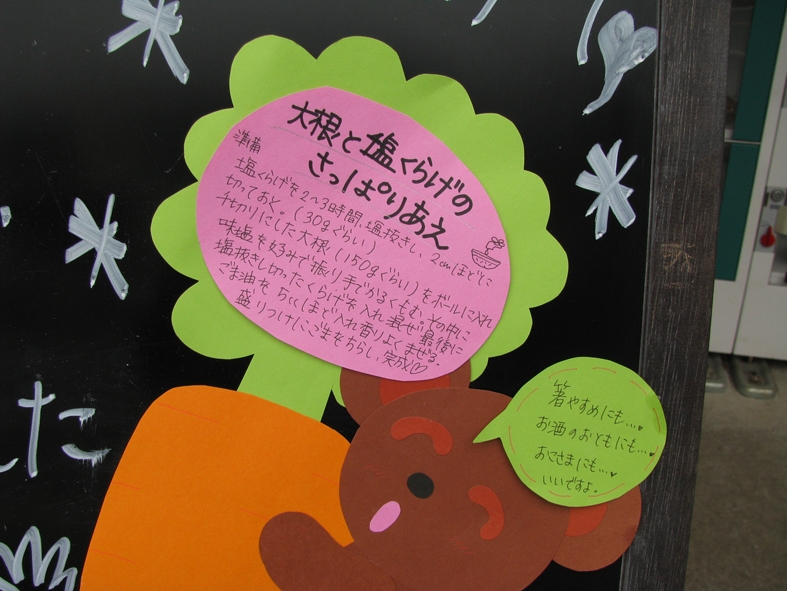 大根と塩くらげの
さっぱりあえ
準備
塩くらげを2~3時間、塩抜きし、2cmほどに
切っておく。(30gぐらい)
千切りにした大根(150gぐらい)をボールに入れ
味塩を好みで振り手でかるくもむ。その中に
塩抜きし切ったくらげを入れ混ぜ最後に
ごま油を5ccほど入れ香りよくまぜる。
盛りつけにごまをちらし、完成♡
箸やすめにも…♥
お酒のおともにも…♥
おこさまにも…♥
いいですよ。
した